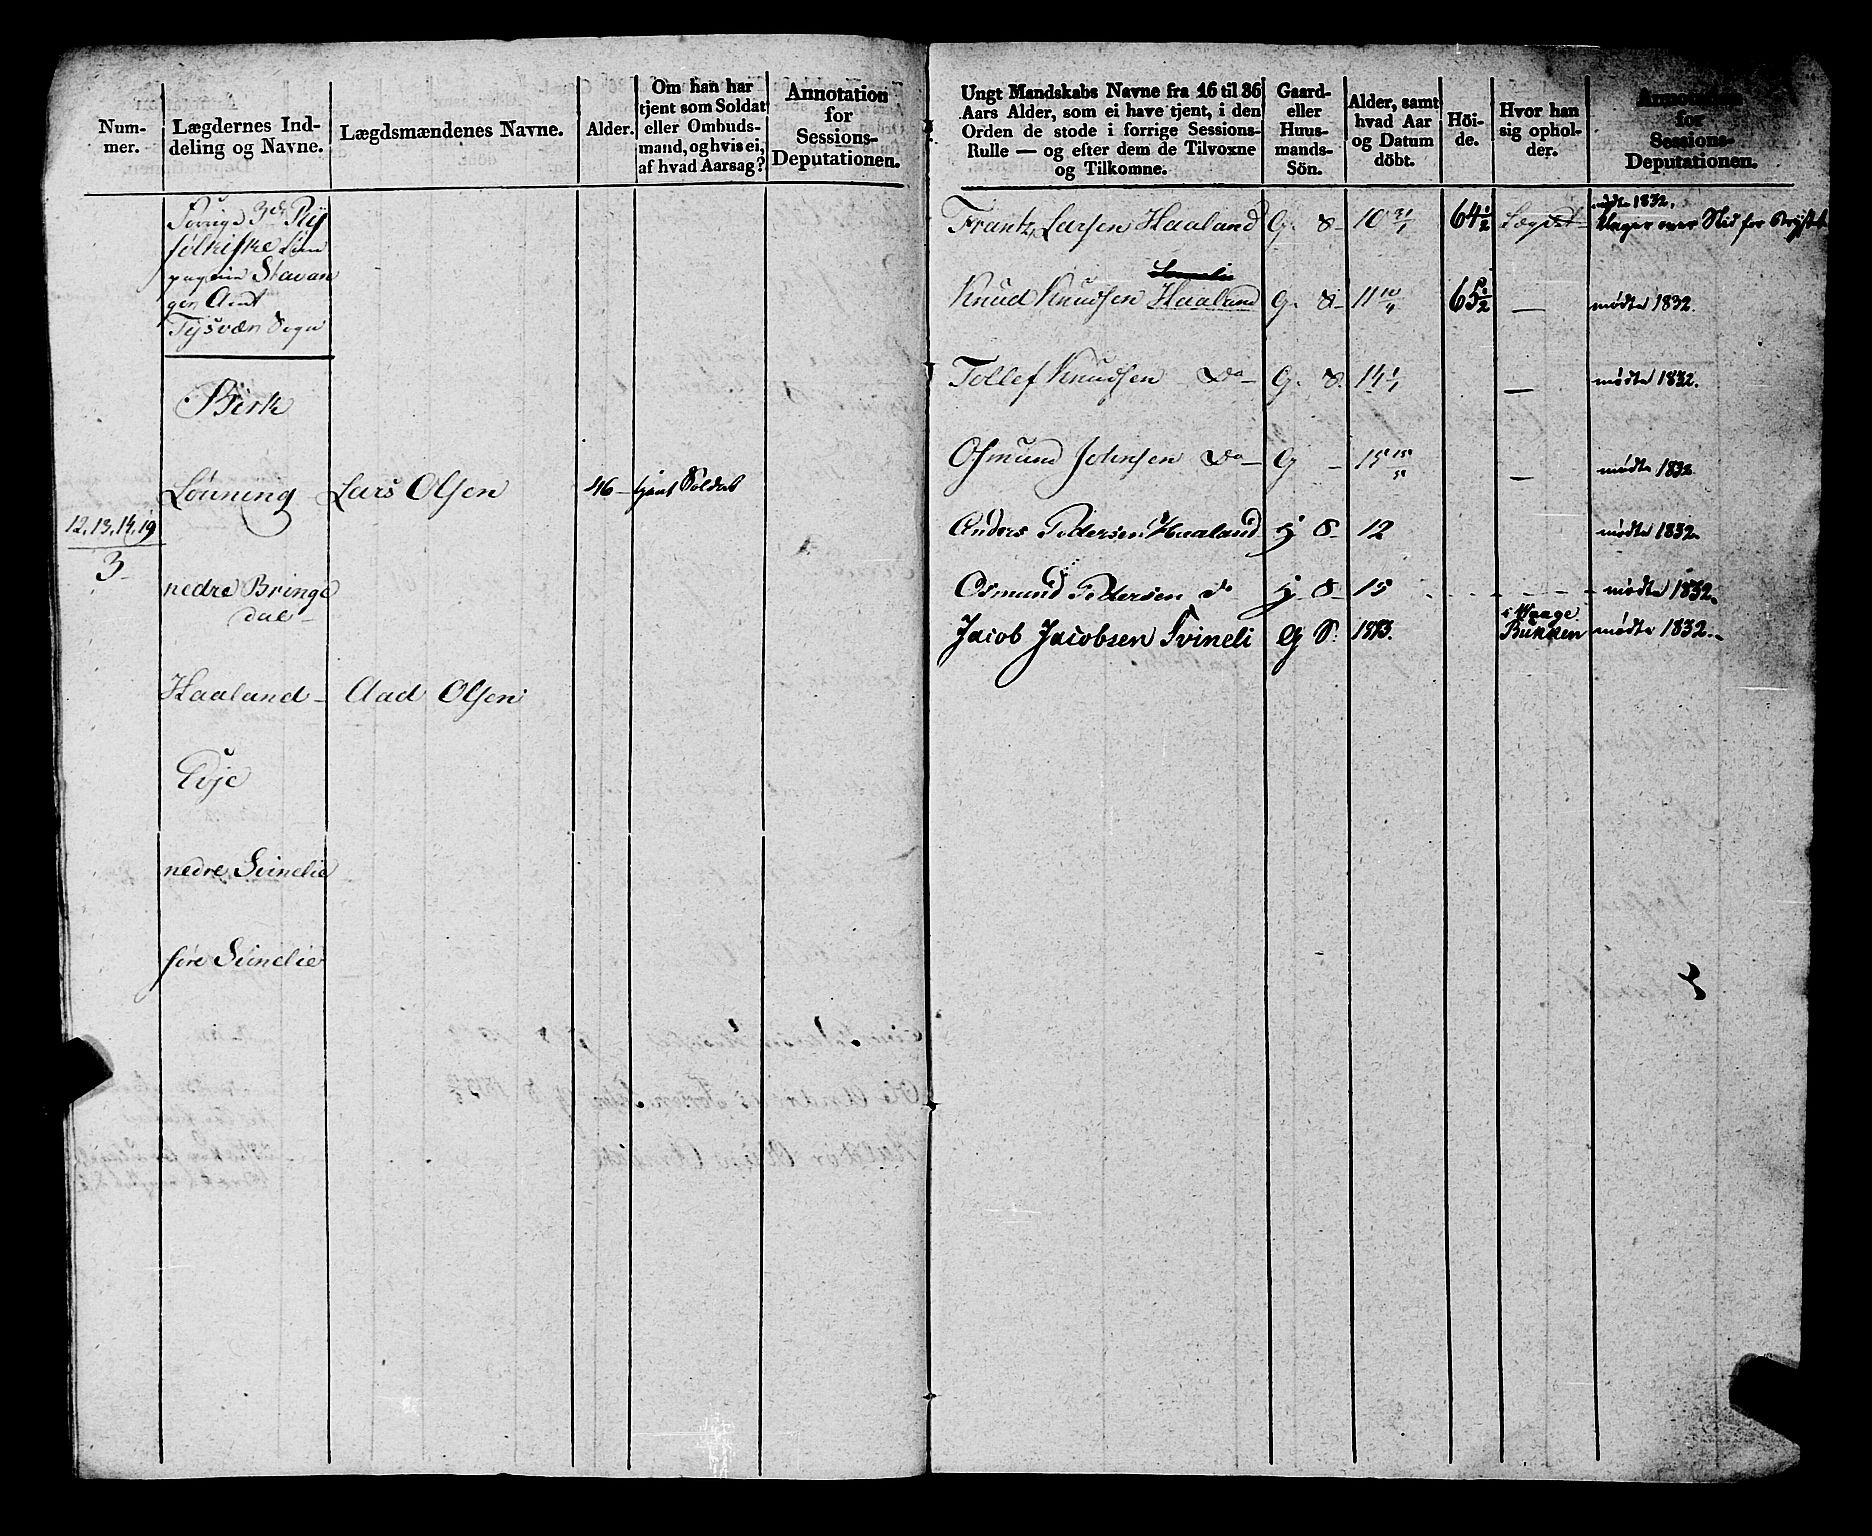 Num-
mer.
Lægdernes Ind-
deling og Navne.
Lægdsmændenes Navne.
Alder.
Om han har
tjent som Soldat
eller Ombuds-
mand, og hvis ei,
af hvad Aarsag?
Annotation
for
Sessions-
Deputationen.
Forrige 3de Ryf
fölkeske Com
pagnie Stavan
ger Amt
Tysvær Sogn
Birk
Löuning Lars Olsen 46 tjent Soldat
12.13.14.19
3
nedre Bringe
dal
Haaland Aad Olsen
Evje
nedre Svinelie
före Svinelie
Ungt Mandskabs Navne fra 16 til 36
Aars Alder, som ei have tjent, i den
Orden de stode i forrige Sessions-
Rulle — og efter dem de Tilvoxne
og Tilkomne.
Gaard-
eller
Huus-
mands-
Sön.
Alder, samt
hvad Aar
og Datum
döbt.
Höi-
de.
Hvor han
sig ophol-
der.
Annotation
for
Sessions-
Deputationen.
mødte 1832.
Frantz Larsen Haaland G. S 10 31/1 64½ Lægdet klager over for Brystet
Knud Knudsen Haaland G. S 11 65½ — mødte 1832.
Tollef Knudsen Do G. S. 14 — mødte 1832.
Osmund Johnsen Do G 15 — mødte 1832
Anders Pedersen Haaland H S 12 mødte 1832.
Osmund Pedersen do H S 15 mødte 1832.
i Waage
Jacob Jacobsen Svineli G S. 1813. Bukken mødte 1832.